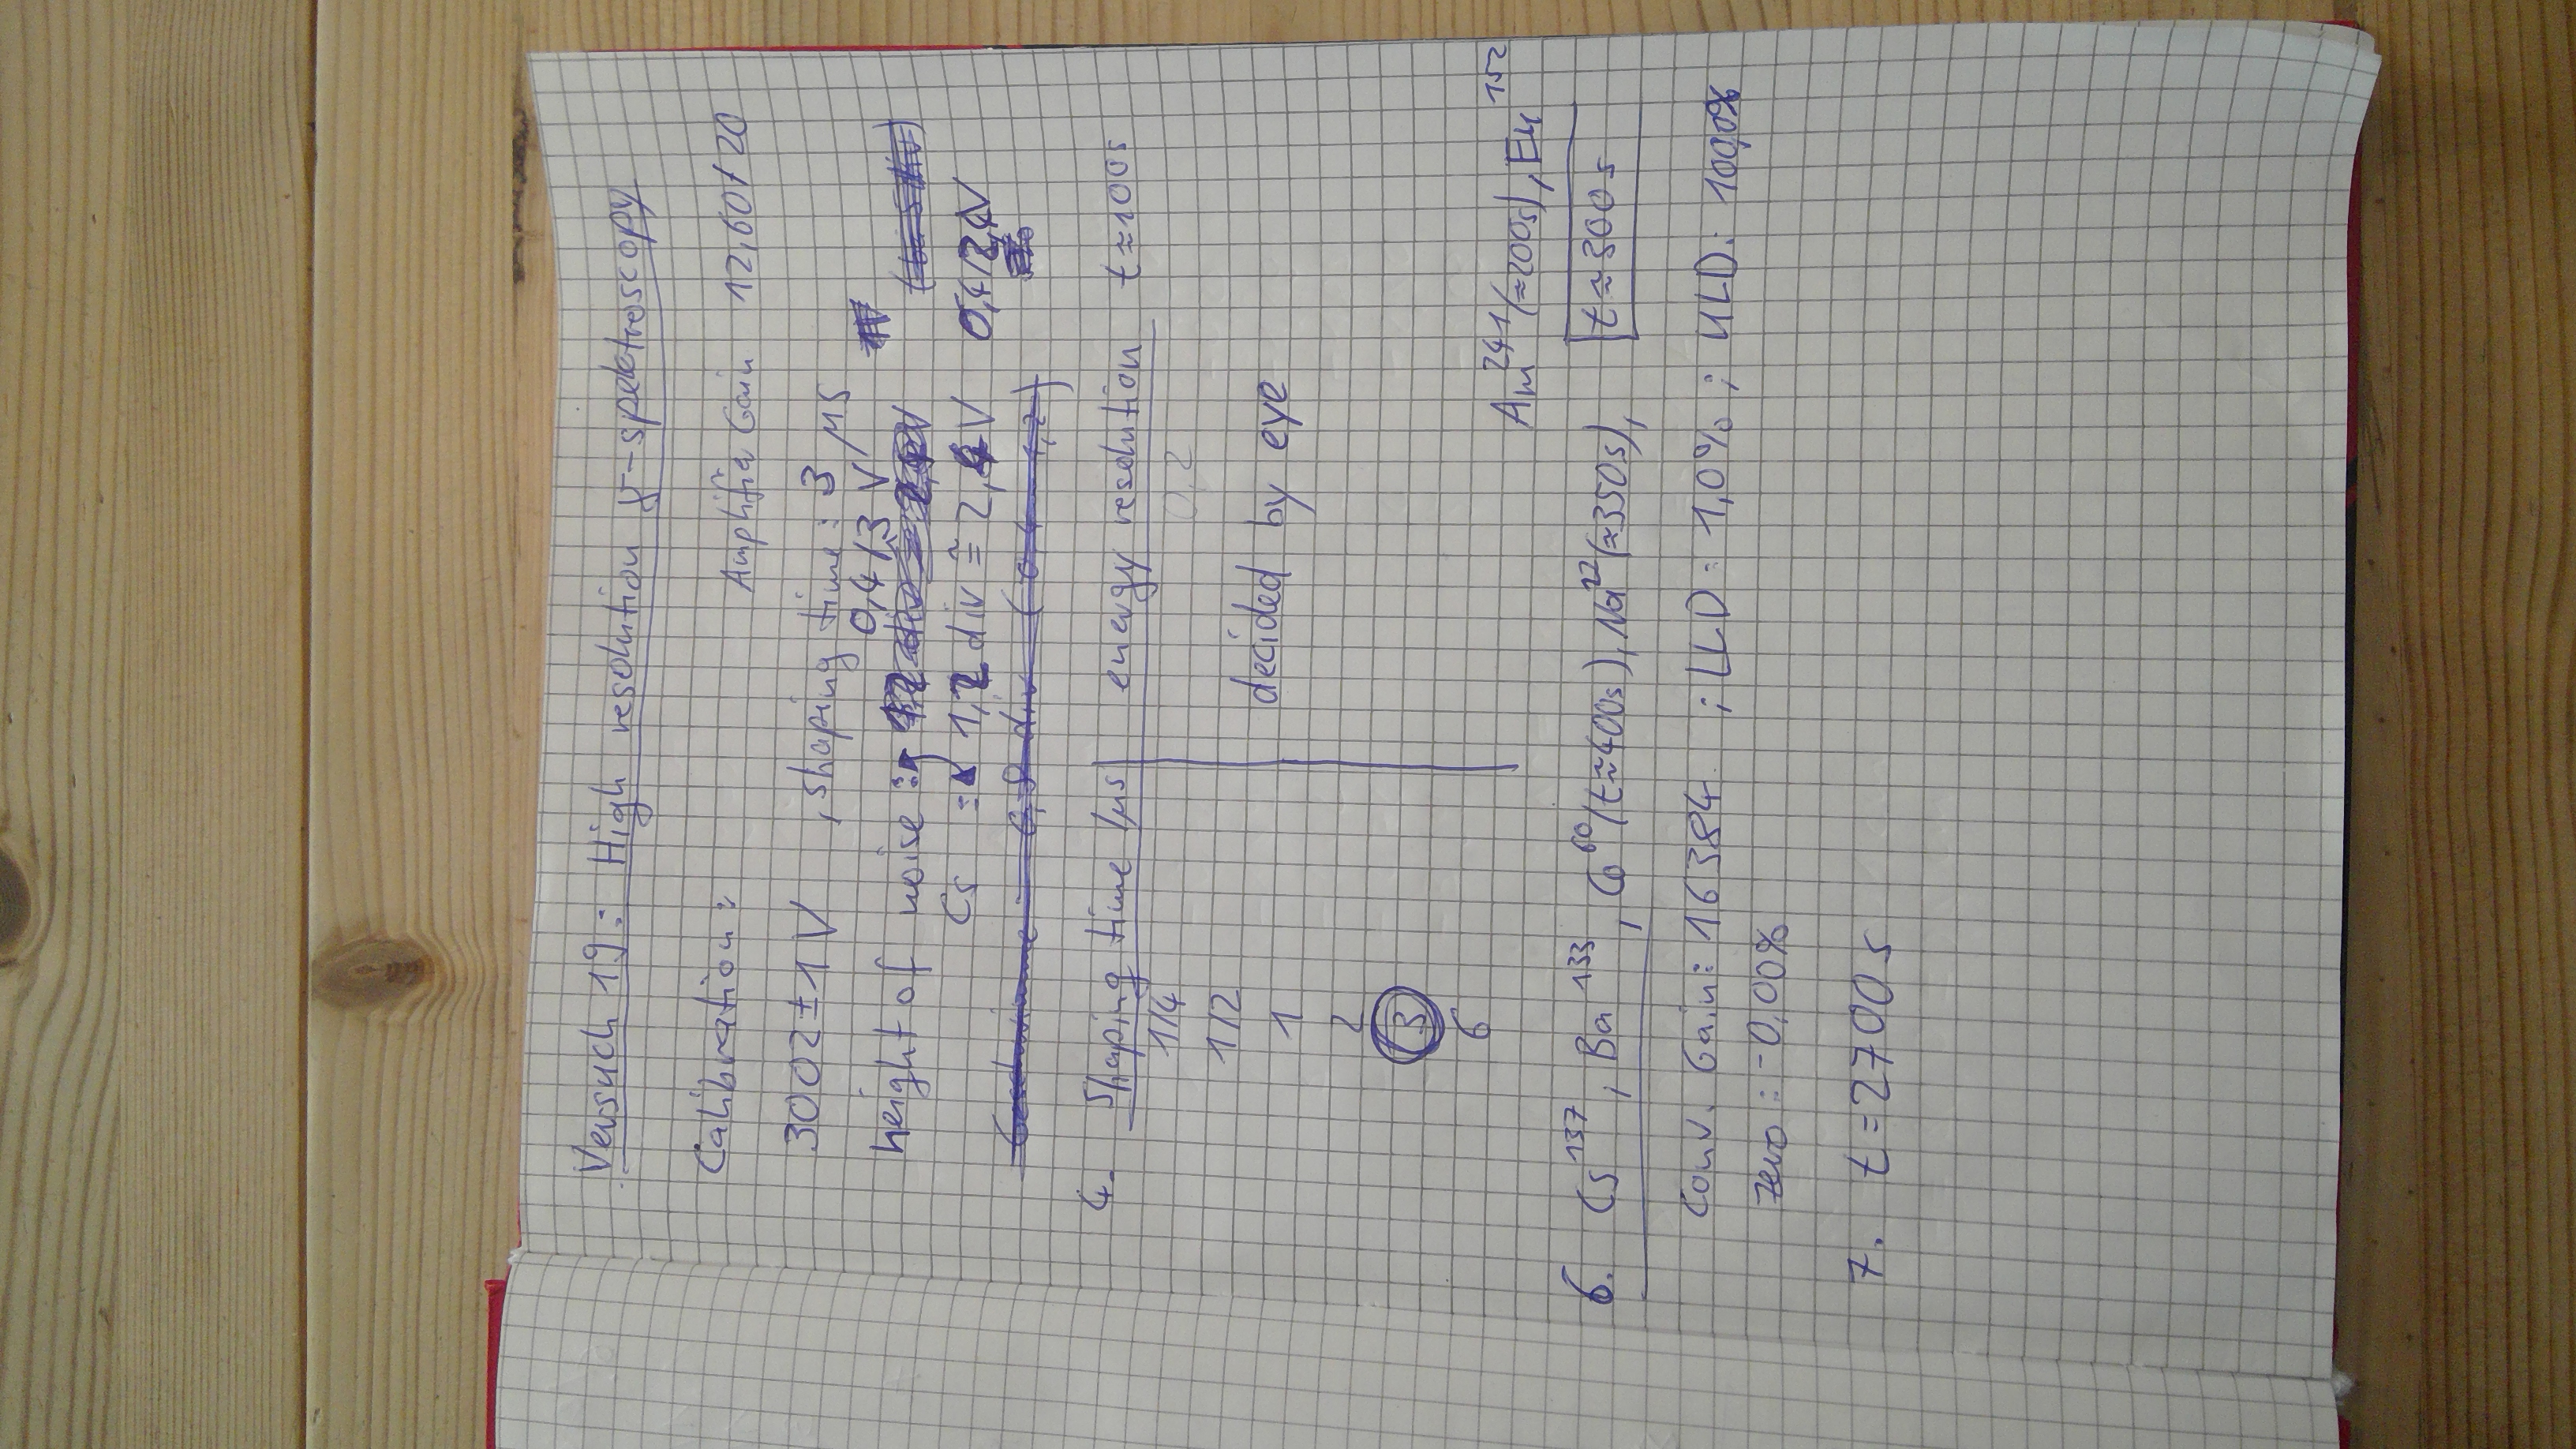 Versuch 19: High resolution γ-spektroscopy
Calibration: Amplifier Gain 12,60/20
3002±1V , shaping time: 3 μs
height of noise: 0,4/3 V
Cs: 1,2 div ≙ 2,4V 0,4/2,4V
4. Shaping time /μs energy resolution t≈100s
1/4 0,2
1/2
1 decided by eye
2
3
6
Am²⁴¹(≈200s), Eu¹⁵²
6. Cs¹³⁷, Ba¹³³, Co⁶⁰(t≈400s), Na²²(≈350s), t≈300s
Conv. Gain: 16384 ; LLD: 1,0% ; ULD: 100,0%
zero: -0,00%
7. t=2700s